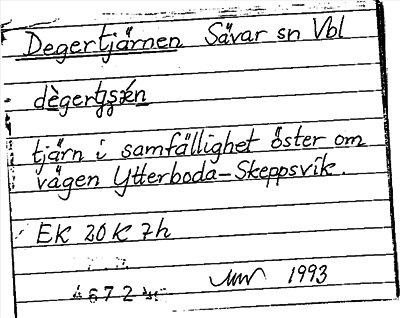 Degertjärnen Sävar sn Vbl
tjärn i samfällighet öster om
vägen Ytterboda-Skeppsvik.
EK 20K 7h
1993